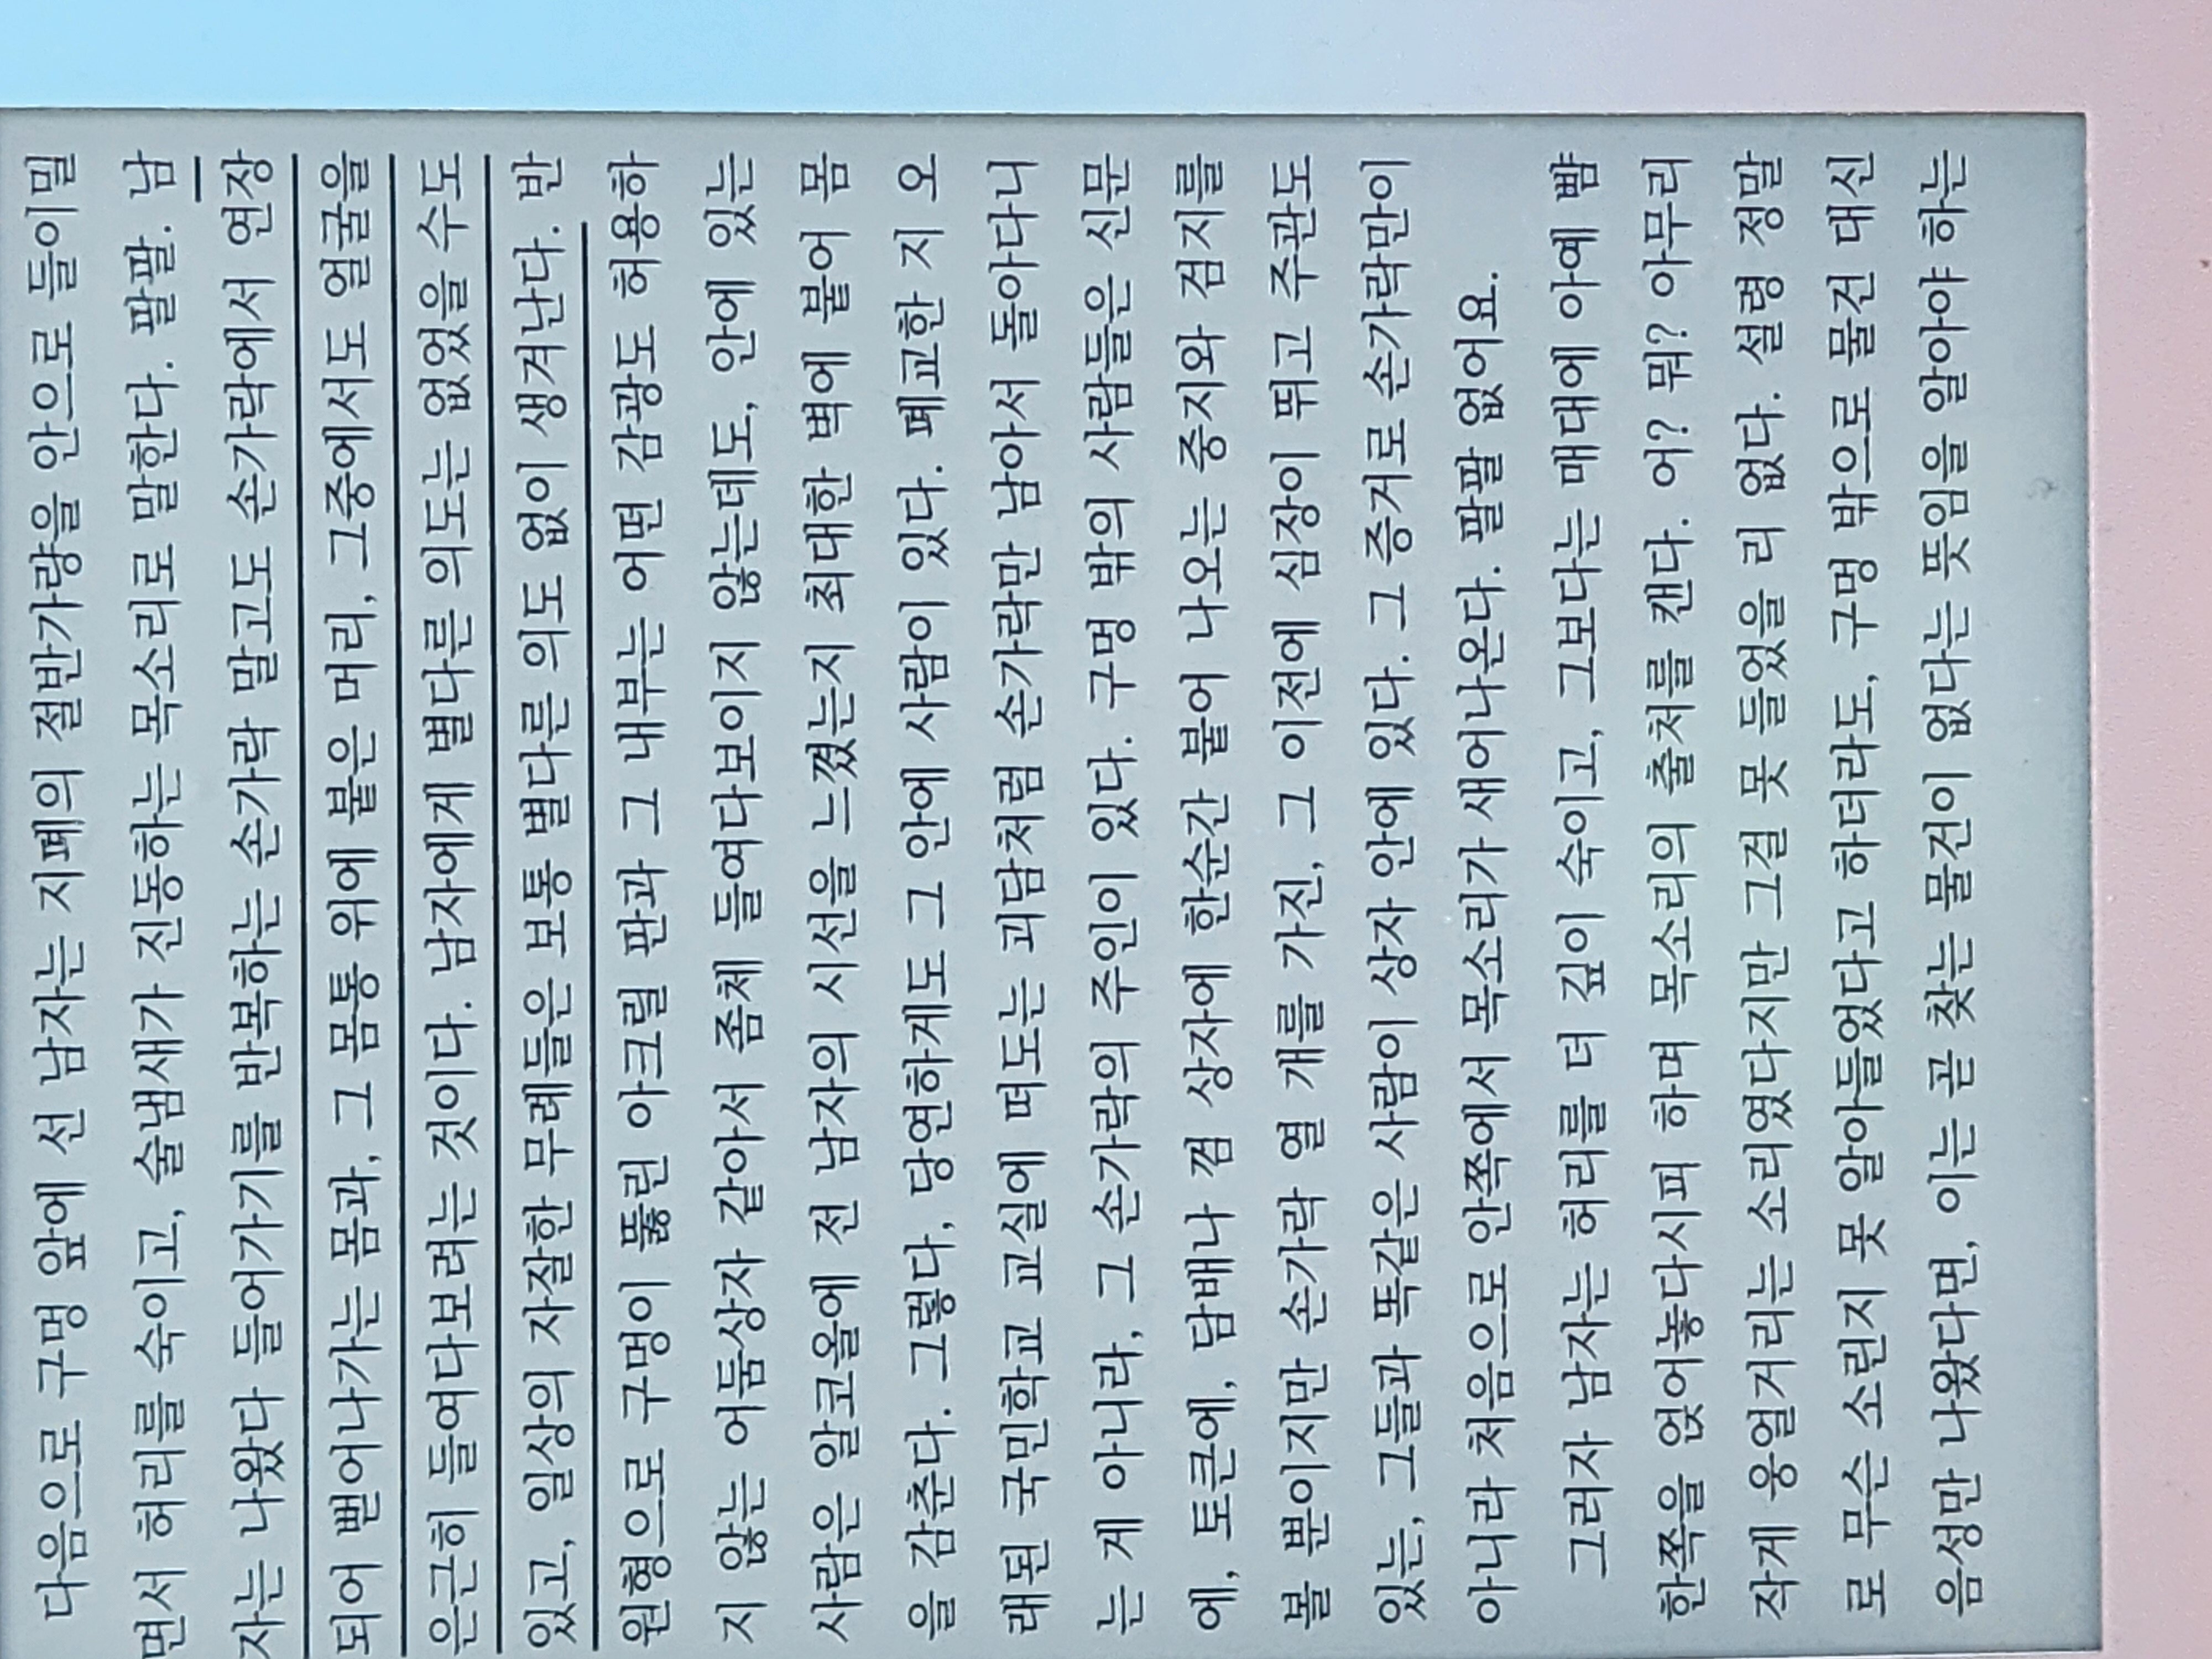 다음으로 구멍 앞에 선 남자는 지폐의 절반가량을 안으로 들이밀
면서 허리를 숙이고, 술냄새가 진동하는 목소리로 말한다. 팔팔. 남
자는 나왔다 들어가기를 반복하는 손가락 말고도 손가락에서 연장
되어 뻗어나가는 몸과, 그 몸통 위에 붙은 머리, 그중에서도 얼굴을
은근히 들여다보려는 것이다. 남자에게 별다른 의도는 없었을 수도
있고, 일상의 자잘한 무례들은 보통 별다른 의도 없이 생겨난다. 반
원형으로 구멍이 뚫린 아크릴 판과 그 내부는 어떤 감광도 허용하
지 않는 어둠상자 같아서 좀체 들여다보이지 않는데도, 안에 있는
사람은 알코올에 전 남자의 시선을 느꼈는지 최대한 벽에 붙어 몸
을 감춘다. 그렇다, 당연하게도 그 안에 사람이 있다. 폐교한 지 오
래된 국민학교 교실에 떠도는 괴담처럼 손가락만 남아서 돌아다니
는 게 아니라, 그 손가락의 주인이 있다. 구멍 밖의 사람들은 신문
에, 토큰에, 담배나 껌 상자에 한순간 붙어 나오는 중지와 검지를
볼 뿐이지만 손가락 열 개를 가진, 그 이전에 심장이 뛰고 주관도
있는, 그들과 똑같은 사람이 상자 안에 있다. 그 증거로 손가락만이
아니라 처음으로 안쪽에서 목소리가 새어나온다. 팔팔 없어요.
그러자 남자는 허리를 더 깊이 숙이고, 그보다는 매대에 아예 뺨
한쪽을 얹어놓다시피 하며 목소리의 출처를 캔다. 어? 뭐? 아무리
작게 웅얼거리는 소리였다지만 그걸 못 들었을 리 없다. 설령 정말
로 무슨 소린지 못 알아들었다고 하더라도, 구멍 밖으로 물건 대신
음성만 나왔다면, 이는 곧 찾는 물건이 없다는 뜻임을 알아야 하는